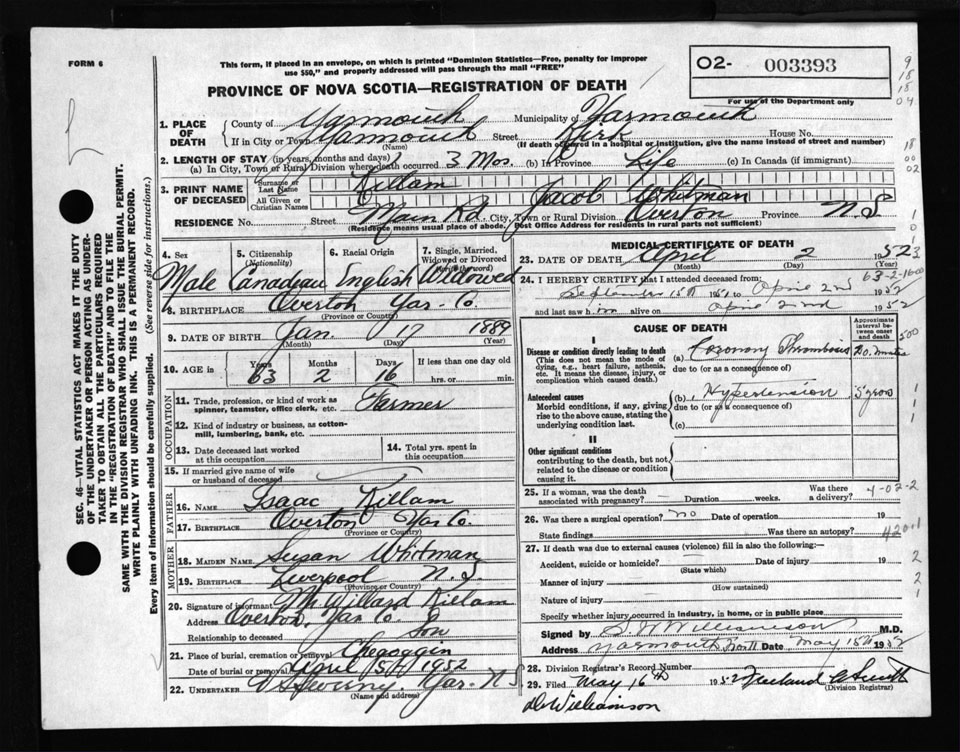 FORM 6
This form, if placed in an envelope, on which is printed "Dominion Statistics—Free, penalty for improper use $50," and properly addressed will pass through the mail "FREE"
O2- 003393
For use of the Department only
PROVINCE OF NOVA SCOTIA—REGISTRATION OF DEATH
1. PLACE OF DEATH County of Yarmouth Municipality of Yarmouth
If in City or Town Yarmouth (Name) Street Kirk House No.
(If death occurred in a hospital or institution, give the name instead of street and number)
2. LENGTH OF STAY (in years, months and days)
(a) In City, Town or Rural Division where death occurred. 3 Mos. (b) In Province Life (c) In Canada (if immigrant)
3. PRINT NAME OF DECEASED Surname or Last Name Killam
All Given or Christian Names Jacob Whitman
RESIDENCE No. Street Main Rd. City, Town or Rural Division Overton Province N S
(Residence means usual place of abode. Post Office Address for residents in rural parts not sufficient)
4. Sex Male
5. Citizenship (Nationality) Canadian
6. Racial Origin English
7. Single, Married, Widowed or Divorced (Write the word) Widowed
8. BIRTHPLACE Overton Yar. Co. (Province or Country)
9. DATE OF BIRTH Jan. (Month) 17 (Day) 1889 (Year)
10. AGE in Years 63 Months 2 Days 16 If less than one day hrs. or min.
OCCUPATION
11. Trade, profession, or kind of work as spinner, teamster, office clerk, etc. Farmer
12. Kind of industry or business, as cotton-mill, lumbering, bank, etc.
13. Date deceased last worked at this occupation
14. Total yrs. spent in this occupation
15. If married give name of wife or husband of deceased
FATHER
16. NAME Isaac Killam
17. BIRTHPLACE Overton Yar Co. (Province or Country)
MOTHER
18. MAIDEN NAME Susan Whitman
19. BIRTHPLACE Liverpool N.S. (Province or Country)
20. Signature of informant Willard Killam
Address Overton, Yar Co.
Relationship to deceased Son
21. Place of burial, cremation or removal Chegoggin
Date of burial or removal April 5th 1952
22. UNDERTAKER Sweeny Yar. N S. (Name and address)
MEDICAL CERTIFICATE OF DEATH
23. DATE OF DEATH April (Month) 2 (Day) 1952 (Year)
24. I HEREBY CERTIFY that I attended deceased from: 63-2-16
September 15th 1951 to April 2nd 1952
and last saw him alive on April 2nd 1952
CAUSE OF DEATH
Approximate interval between onset and death
I
Disease or condition directly leading to death (a) Coronary Thrombosis 20. minutes
(This does not mean the mode of dying, e.g., heart failure, asthenia, etc. It means the disease, injury, or complication which caused death.)
due to (or as a consequence of)
Antecedent causes (b) Hypertension 5 years
Morbid conditions, if any, giving rise to the above cause, stating the underlying condition last.
due to (or as a consequence of)
(c)
II
Other significant conditions contributing to the death, but not related to the disease or condition causing it.
25. If a woman, was the death associated with pregnancy? Duration weeks. Was there a delivery?
4-02-2
26. Was there a surgical operation? no Date of operation 19
State findings Was there an autopsy?
420.1
27. If death was due to external causes (violence) fill in also the following:—
Accident, suicide or homicide? (State which) Date of injury 19
Manner of injury (How sustained)
Nature of injury
Specify whether injury occurred in industry, in home, or in public place
Signed by Williamson M.D.
Address Yarmouth Date May 15th 1952
28. Division Registrar's Record Number
29. Filed May 16th 1952 (Division Registrar)
Dr Williamson
SEC. 46—VITAL STATISTICS ACT MAKES IT THE DUTY OF THE UNDERTAKER OR PERSON ACTING AS UNDERTAKER TO OBTAIN ALL THE PARTICULARS REQUIRED IN THE "REGISTRATION OF DEATH" AND TO FILE THE SAME WITH THE DIVISION REGISTRAR WHO SHALL ISSUE THE BURIAL PERMIT.
WRITE PLAINLY WITH UNFADING INK. THIS IS A PERMANENT RECORD.
Every item of information should be carefully supplied. (See reverse side for instructions.)